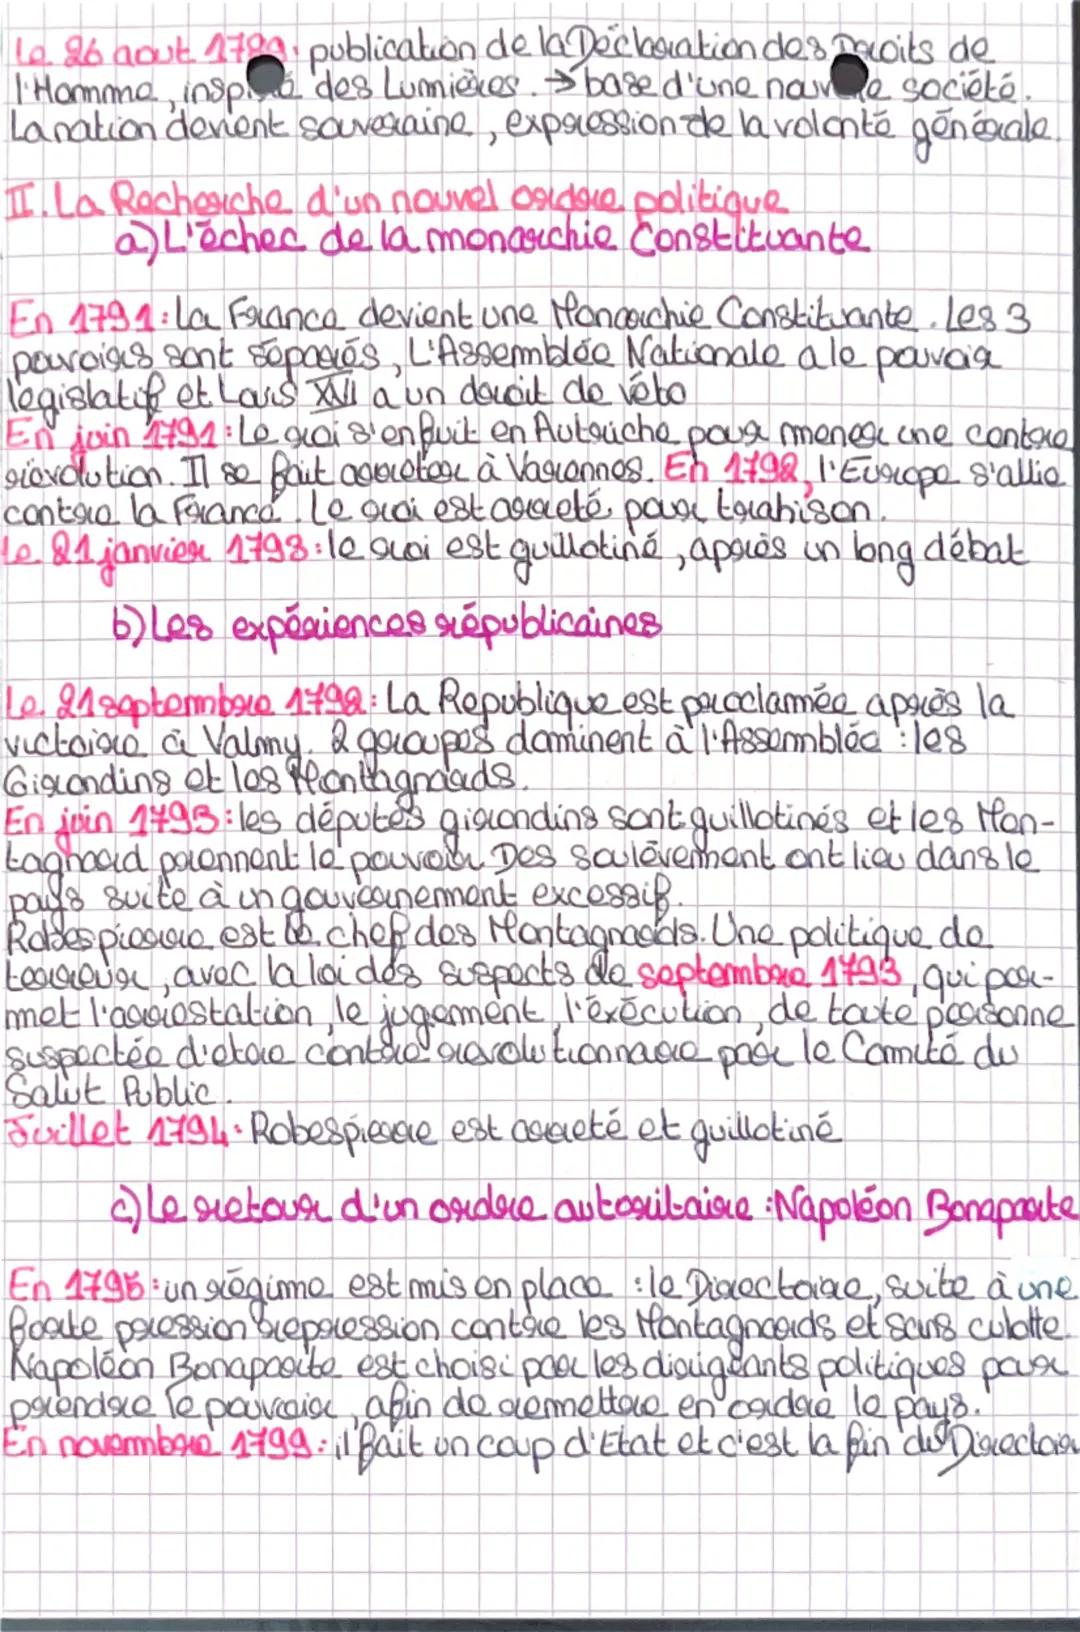 Le 26 aout 1789: publication de la Déclaration des Droits de
l'Homme, inspiré des Lumières. → base d'une nouvelle société.
La nation devient souveraine, expression de la volonté générale.
II. La Recherche d'un nouvel ordre politique
a) L'échec de la monarchie Constituante
En 1791: La France devient une Monarchie Constituante. Les 3
pouvoirs sont séparés, L'Assemblée Nationale a le pouvoir
législatif et Louis XVI a un droit de véto
En juin 1791: Le roi s'enfuit en Autriche pour mener une contre
révolution. Il se fait arreter à Varennes. En 1792, l'Europe s'allie
contre la France. Le roi est arreté, pour trahison.
Le 21 janvier 1793: le roi est guillotiné, après un long débat
b) Les expériences républicaines
Le 21 septembre 1792: La Republique est proclamée après la
victoire à Valmy. 2 groupes dominent à l'Assemblée: les
Girondins et les Montagnards.
En juin 1793: les députés girondins sont guillotinés et les Mon-
tagnard prennent le pouvoir. Des soulèvement ont lieu dans le
pays suite à un gouvernement excessif.
Robespierre est le chef des Montagnards. Une politique de
terreur, avec la loi des suspects de septembre 1793, qui per-
met l'arrestation, le jugement, l'exécution, de toute personne
suspectée d'etre contre revolutionnaire par le Comité du
Salut Public.
Juillet 1794: Robespierre est arreté et guillotiné
c) Le retour d'un ordre autoritaire: Napoléon Bonaparte
En 1795: un régime est mis en place: le Directoire, suite à une
forte pression repression contre les Montagnards et sans culotte.
Napoléon Bonaparte est choisi par les dirigeants politiques pour
prendre le pouvoir, afin de remettre en ordre le pays.
En novembre 1799: il fait un coup d'Etat et c'est la fin du Directoire